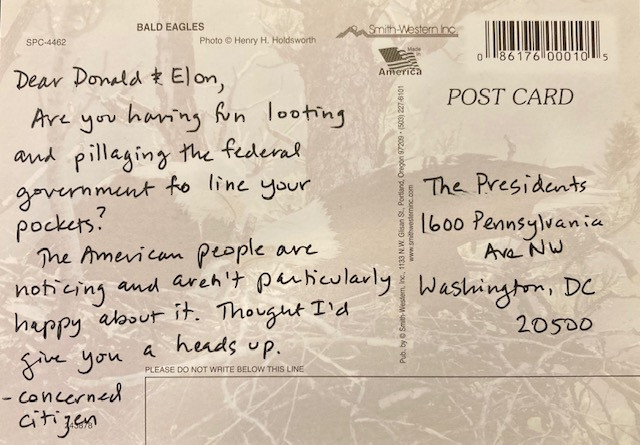 BALD EAGLES
SPC-4462
Photo © Henry H. Holdsworth
Smith-Western Inc.
Made in
America
0 86176 00010 5
POST CARD
Dear Donald & Elon,
Are you having fun looting
and pillaging the federal
government to line your
pockets?
The American people are
noticing and aren't particularly
happy about it. Thought I'd
give you a heads up.
- concerned
citizen
PLEASE DO NOT WRITE BELOW THIS LINE
Pub. by © Smith-Western, Inc., 1133 N.W. Glisan St., Portland, Oregon 97209 • (503) 227-6101
www.smithwesterninc.com
The Presidents
1600 Pennsylvania
Ave NW
Washington, DC
20500